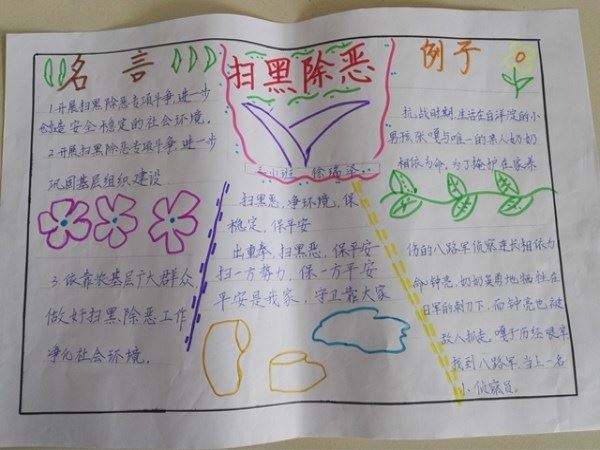 名言
1.开展扫黑除恶专项斗争,进一步
创造安全稳定的社会环境。
2.开展扫黑除恶专项斗争,进一步
巩固基层组织建设
3.依靠农基层广大群众
做好扫黑除恶工作
净化社会环境。
扫黑除恶
扫黑恶,净环境,保
稳定,保平安
出重拳,扫黑恶,保平安
扫一方势力,保一方平安
平安是我家,守卫靠大家
例子
抗战时期,生活在白洋淀的小
男孩张嘎与唯一的亲人奶奶
相依为命,为了掩护在家养
伤的八路军侦察连长
命,钟亮,奶奶英勇地牺牲在
日军的刺刀下,而钟亮也被
敌人抓走,嘎子历经艰辛
找到八路军,当上一名
小侦察员。